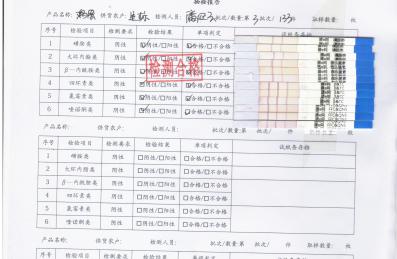 检验报告
产品名称: 供货农户: 检测人员: 批次/数量:第3批次/133件 取样数量: 枚
序号 检验项目 检测要求 检验结果 单项判定 试纸条存档
1 磺胺类 阴性 ☑阴性/□阳性 ☑合格/□不合格
2 大环内酯类 阴性 ☑阴性/□阳性 ☑合格/□不合格
3 β一内酰胺类 阴性 ☑阴性/□阳性 ☑合格/□不合格
4 四环素类 阴性 ☑阴性/□阳性 ☑合格/□不合格
5 氯霉素类 阴性 ☑阴性/□阳性 ☑合格/□不合格
6 喹诺酮类 阴性 ☑阴性/□阳性 ☑合格/□不合格
检测合格
产品名称: 供货农户: 检测人员: 批次/数量:第 批次/ 件 取样数量: 枚
序号 检验项目 检测要求 检验结果 单项判定 试纸条存档
1 磺胺类 阴性 □阴性/□阳性 □合格/□不合格
2 大环内酯类 阴性 □阴性/□阳性 □合格/□不合格
3 β一内酰胺类 阴性 □阴性/□阳性 □合格/□不合格
4 四环素类 阴性 □阴性/□阳性 □合格/□不合格
5 氯霉素类 阴性 □阴性/□阳性 □合格/□不合格
6 喹诺酮类 阴性 □阴性/□阳性 □合格/□不合格
产品名称: 供货农户: 检测人员: 批次/数量:第 批次/ 件 取样数量: 枚
序号 检验项目 检测要求 检验结果 单项判定